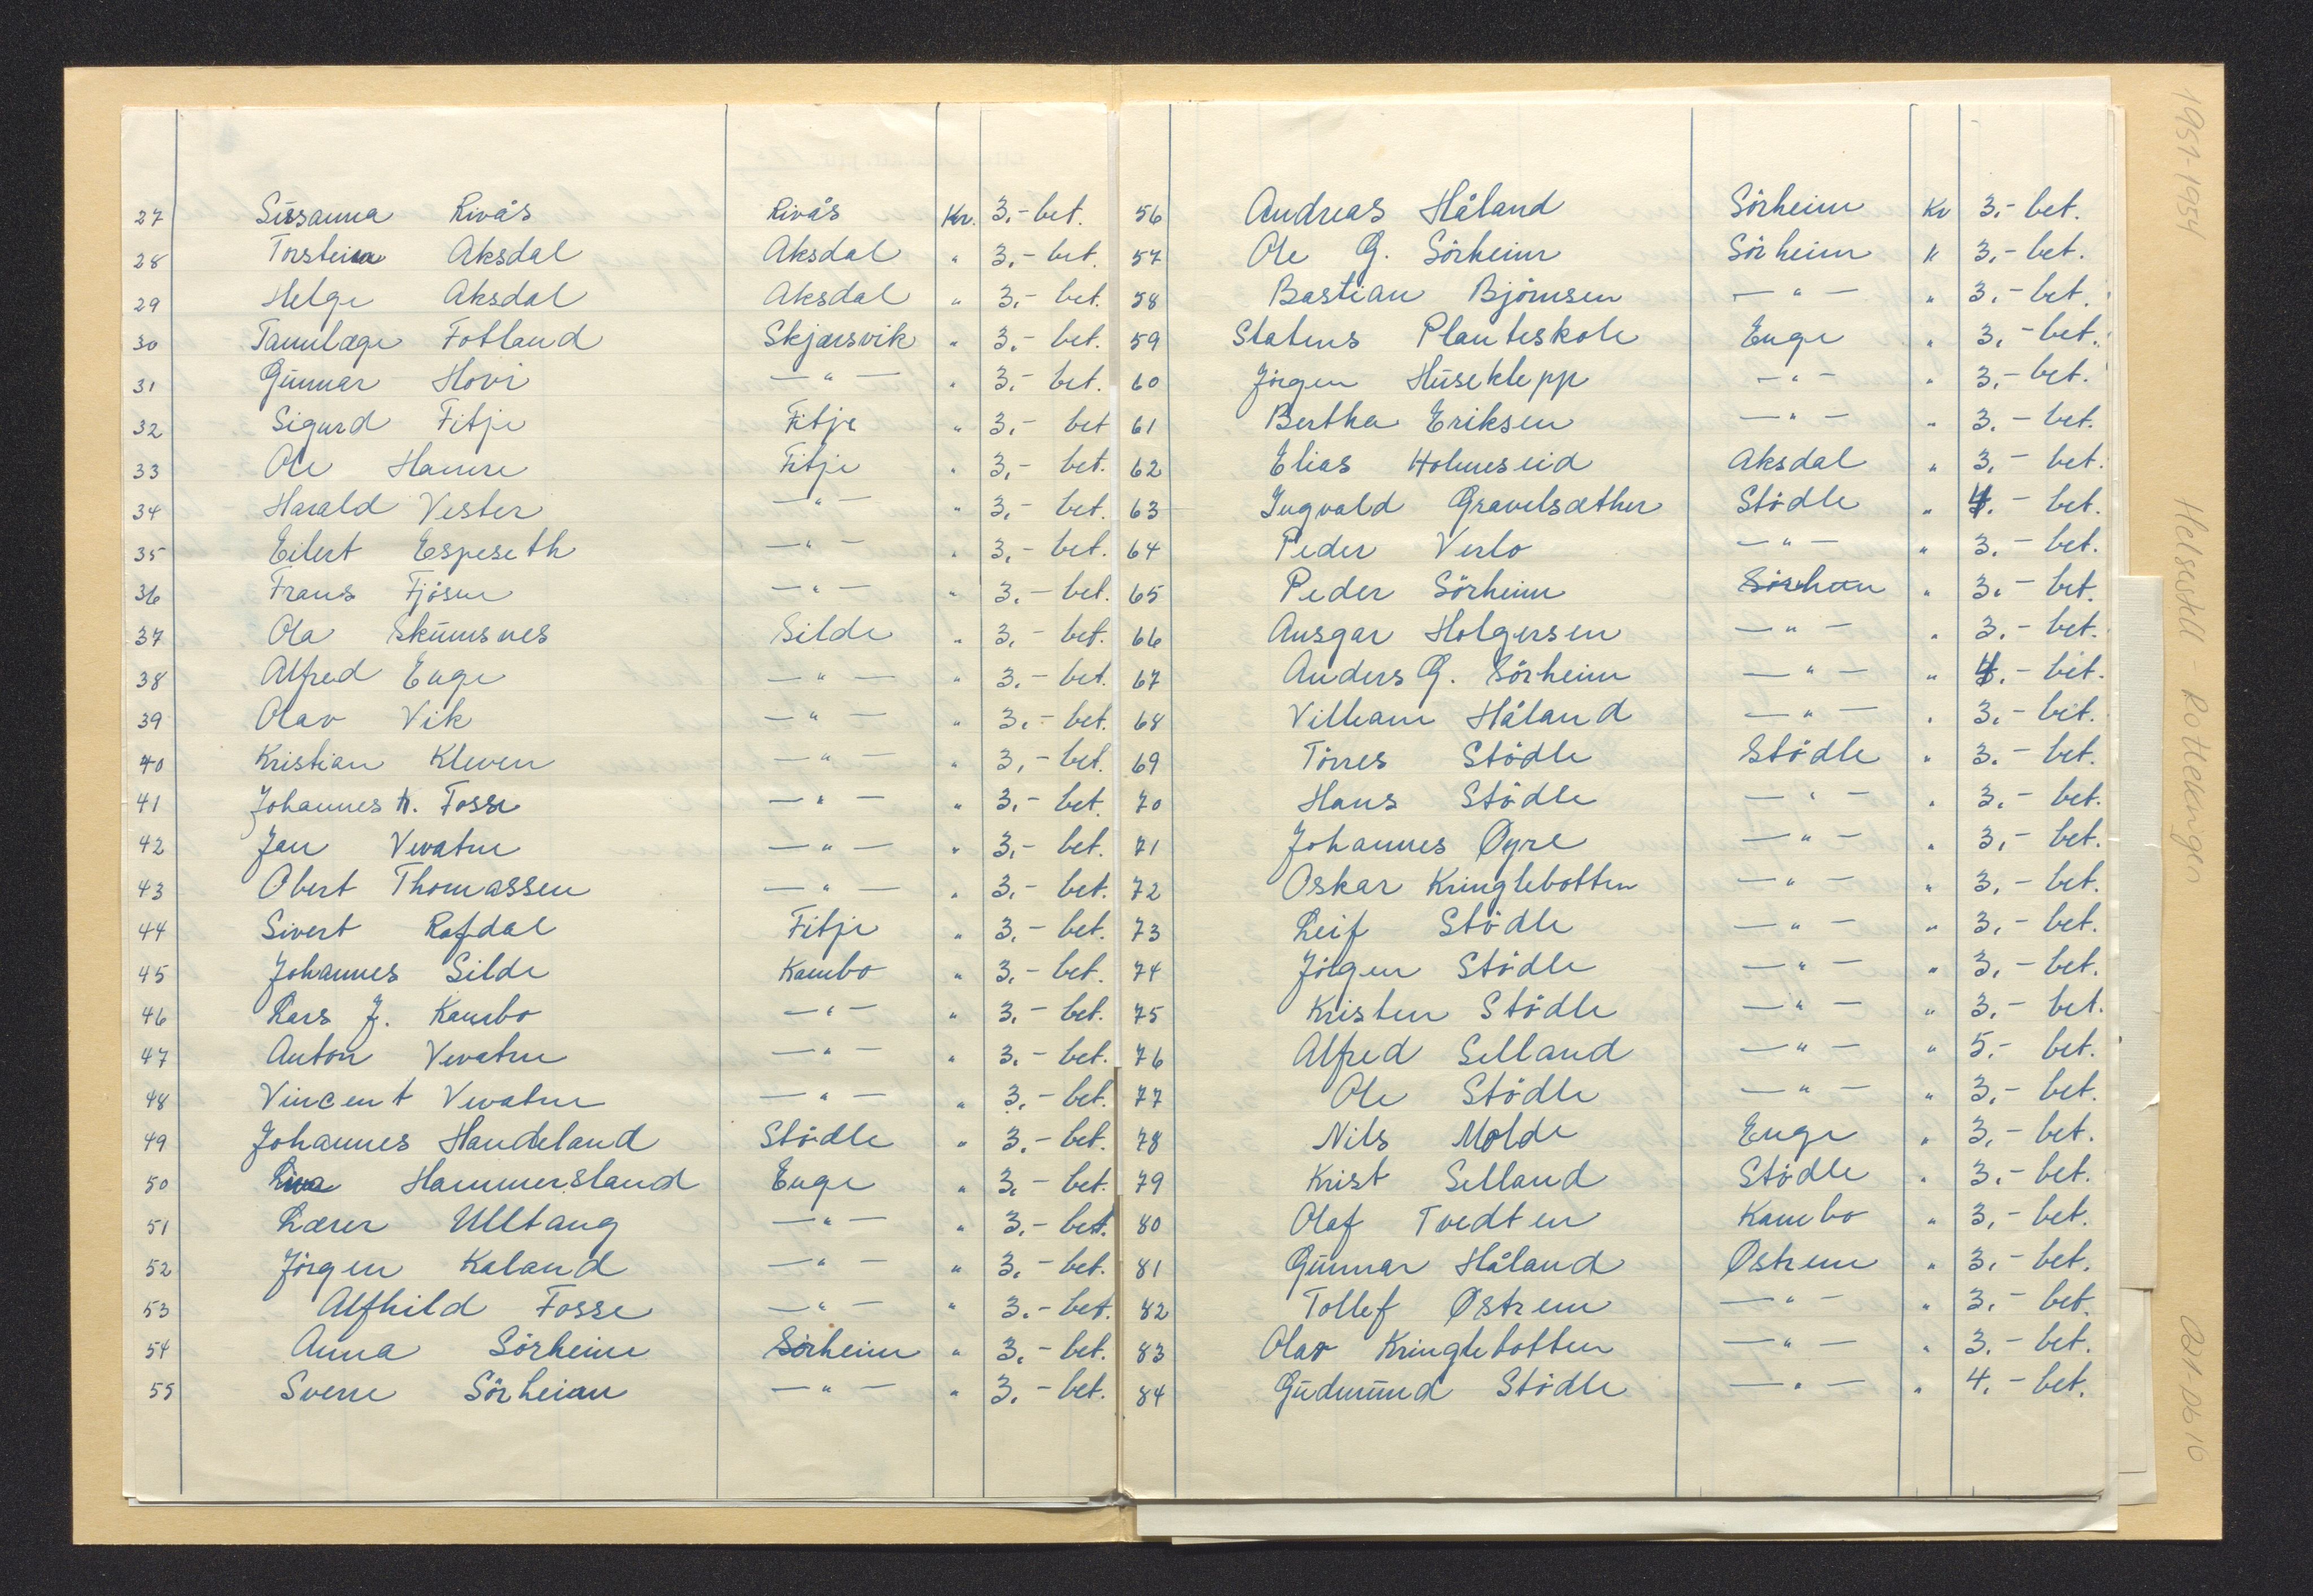 27 Susanna Rivås Rivås Kr. 3,- bet.
28 Torstein Aksdal Aksdal " 3,- bet.
29 Helge Aksdal Aksdal " 3,- bet.
30 Tannlæge Fotland Skjærsvik " 3,- bet.
31 Gunnar Hovi — " — " 3,- bet.
32 Sigurd Fitje Fitje " 3,- bet
33 Ole Hamre Fitje " 3,- bet.
34 Harald Vester — " — " 3,- bet.
35 Eilert Espeseth — " — " 3,- bet.
36 Frans Fjösne — " — " 3,- bet.
37 Ola Skumsnes Silde " 3,- bet.
38 Alfred Enge — " — " 3,- bet.
39 Olav Vik — " — " 3,- bet.
40 Kristian Kleven — " — " 3,- bet.
41 Johannes K. Fosse — " — " 3,- bet.
42 Jan Vevatne — " — " 3,- bet.
43 Obert Thomassen — " — " 3,- bet.
44 Sivert Rafdal Fitje " 3,- bet.
45 Johannes Silde Kambo " 3,- bet.
46 Lars J. Kambo — " — " 3,- bet.
47 Anton Vevatne — " — " 3,- bet.
48 Vincent Vevatne — " — " 3,- bet.
49 Johannes Handeland Stödle " 3,- bet.
50 Hammersland Enge " 3,- bet.
51 Lærer Ulltang — " — " 3,- bet.
52 Jörgen Kaland — " — " 3,- bet.
53 Alfhild Fosse — " — " 3,- bet.
54 Anna Sörheim Sörheim " 3,- bet.
55 Sverre Sörheim — " — " 3,- bet.
56 Andreas Håland Sörheim Kr 3,- bet.
57 Ole G. Sörheim Sörheim " 3,- bet.
58 Bastian Björnsen — " — " 3,- bet.
59 Statens Planteskole Enge " 3,- bet.
60 Jörgen Huseklepp — " — " 3,- bet.
61 Bertha Eriksen — " — " 3,- bet.
62 Elias Holmeseid Aksdal " 3,- bet.
63 Ingvald Gravelsæther Stödle " 4,- bet.
64 Peder Verlo — " — " 3,- bet.
65 Peder Sörheim Sörheim " 3,- bet.
66 Ansgar Holgersen — " — " 3,- bet.
67 Anders G. Sörheim — " — " 4,- bet.
68 Villiam Håland — " — " 3,- bet.
69 Törres Stödle Stödle " 3,- bet.
70 Hans Stödle — " — " 3,- bet.
71 Johannes Øyre — " — " 3,- bet.
72 Oskar Kringlebotten — " — " 3,- bet.
73 Leif Stödle — " — " 3,- bet.
74 Jörgen Stödle — " — " 3,- bet.
75 Kristen Stödle — " — " 3,- bet.
76 Alfred Selland — " — " 5,- bet.
77 Ole Stödle — " — " 3,- bet.
78 Nils Molde Enge " 3,- bet.
79 Krist Selland Stödle " 3,- bet.
80 Olaf Tvedten Kambo " 3,- bet.
81 Gunnar Håland Østrem " 3,- bet.
82 Tollef Østrem — " — " 3,- bet.
83 Olav Kringlebotten — " — " 3,- bet.
84 Gudmund Stödle — " — " 4,- bet.
1951-1954 Helseråd Rottekrigen 021-0610